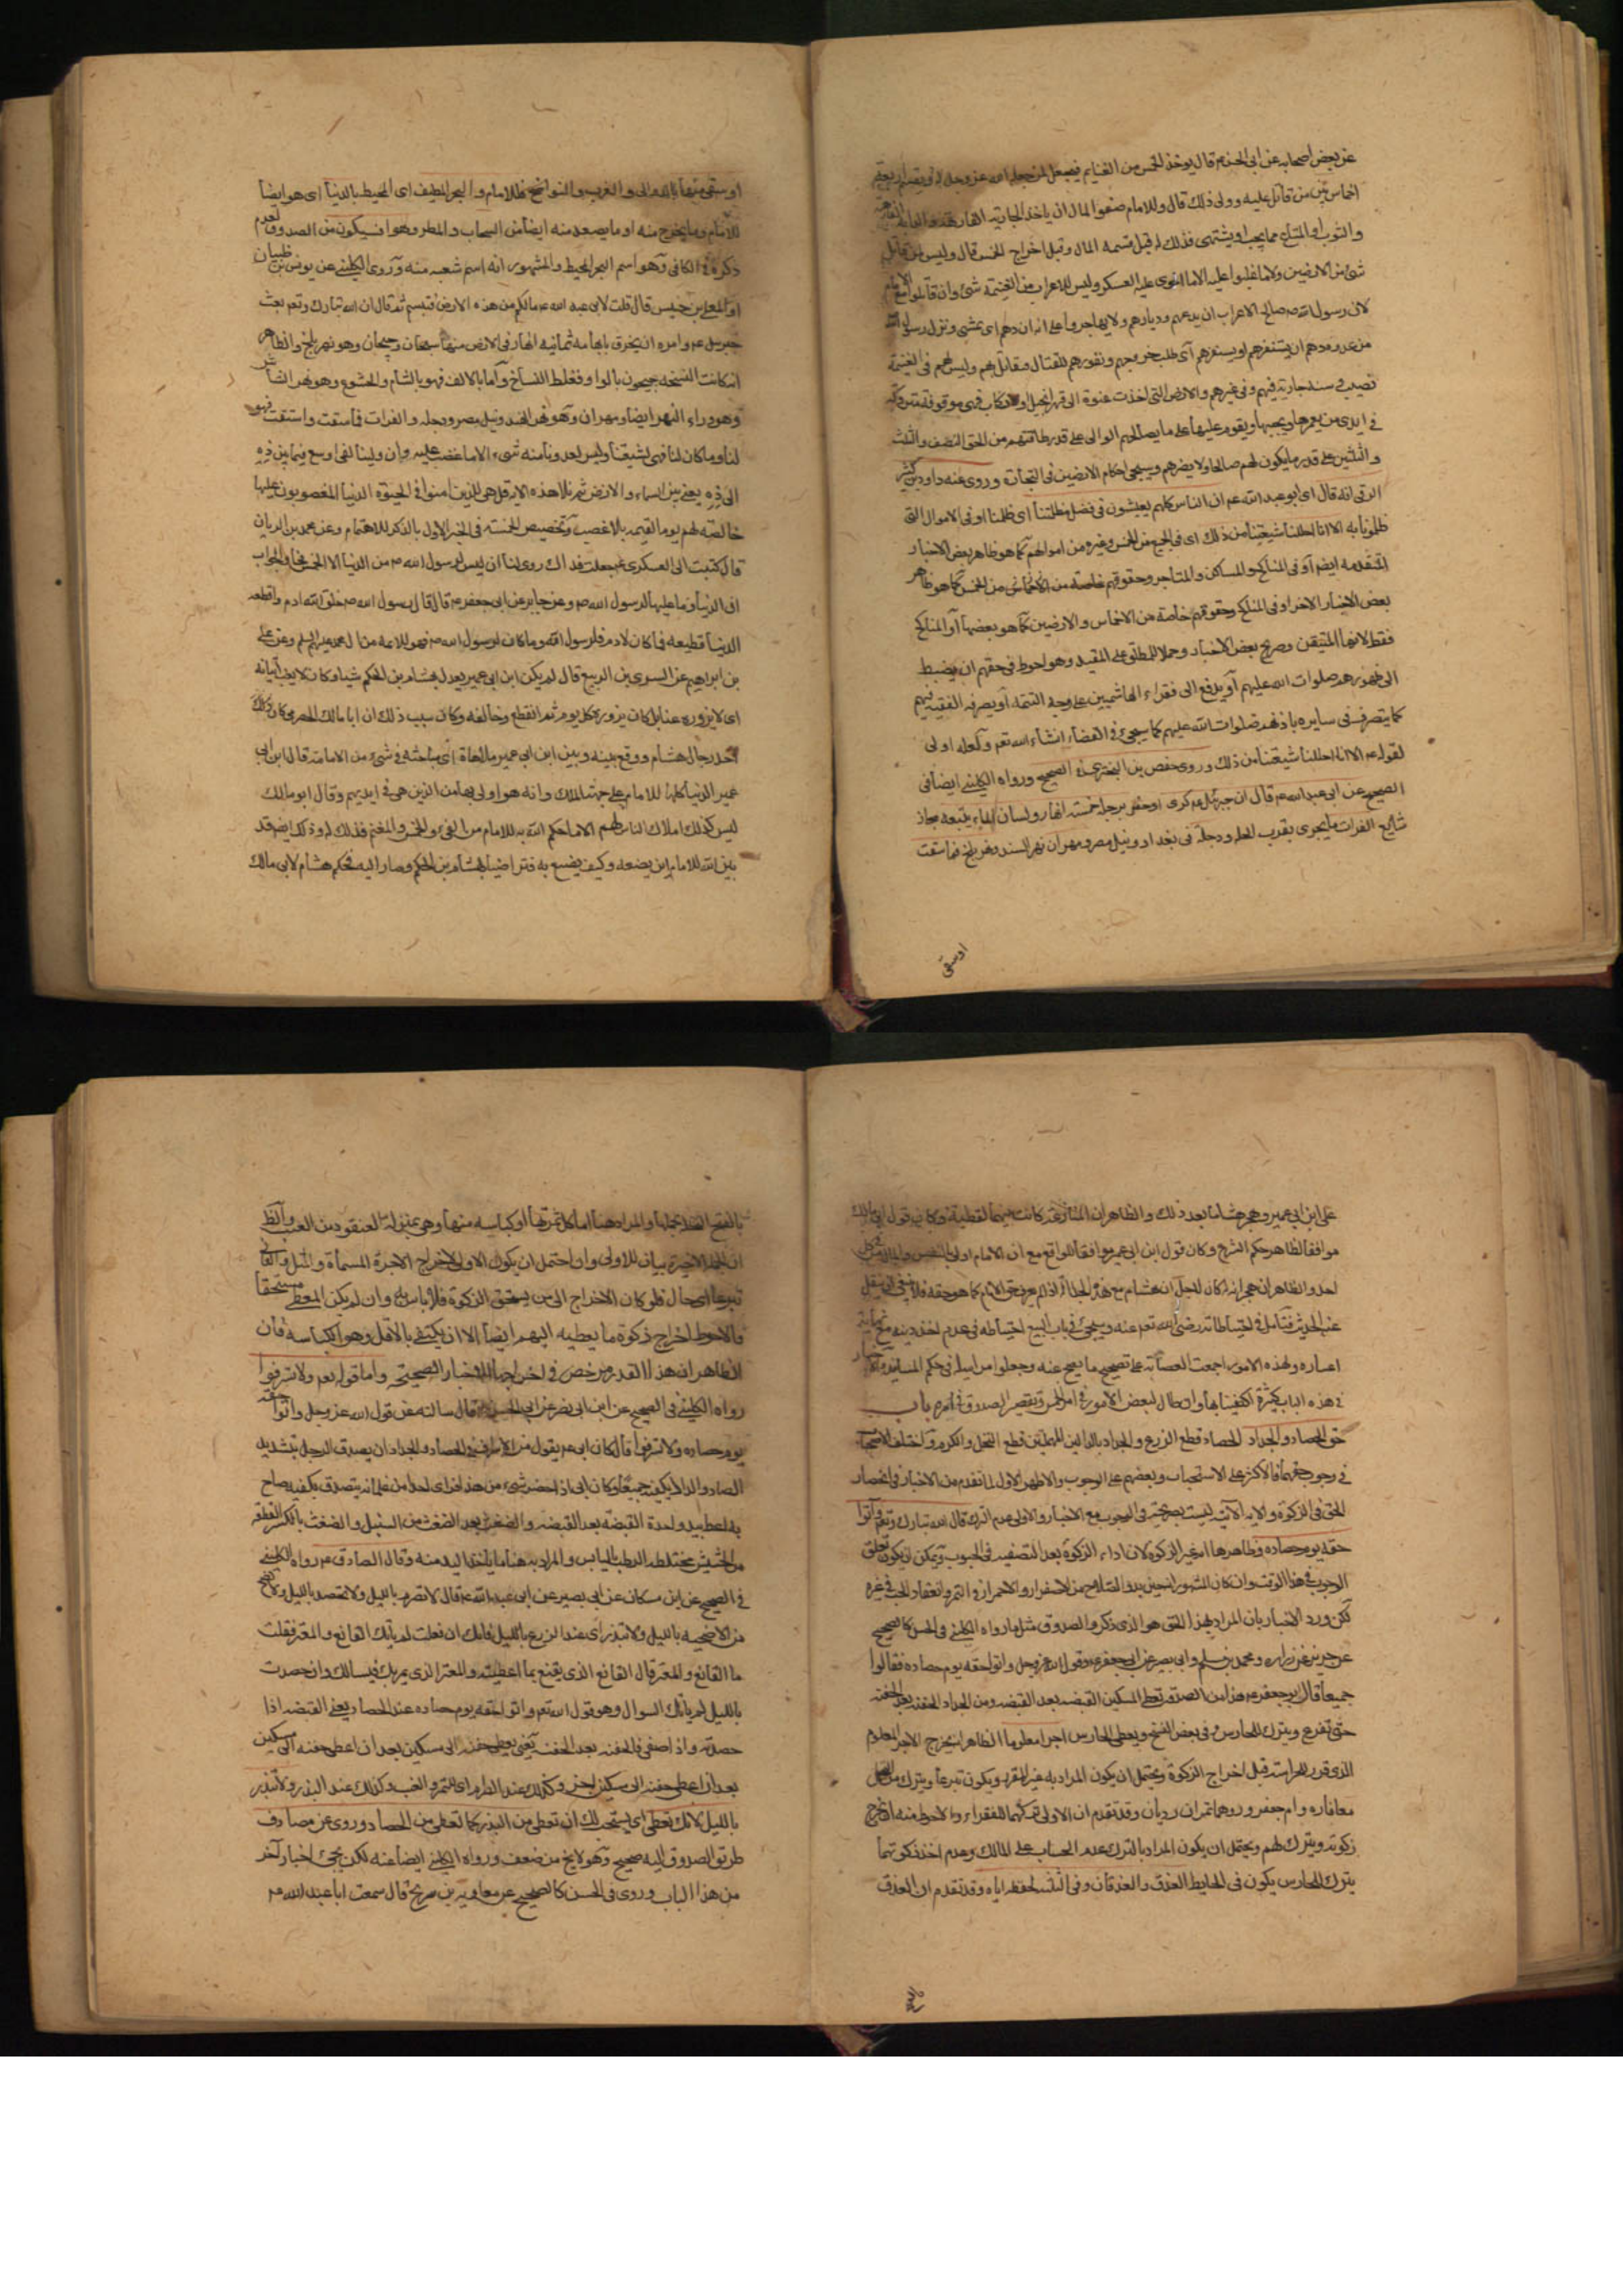 عن بعض اصحابه عن ابى الحسن ع قال يوخذ الخمس من الغنايم فيجعل لمن جعله الله عز وجل له ويقسم اربعة
اخماس بين من قاتل عليه وولى ذلك قال وللامام صفو المال ان ياخذ الجارية الفارهة والدابة الفارهة
والثوب او المتاع مما يحب او يشتهى فذلك له قبل قسمة المال وقبل اخراج الخمس قال وليس لمن قاتل
شئ من الارضين ولا ما غلبوا عليه الا ما احتوى عليه العسكر وليس للاعراب من الغنيمة شئ وان قاتلوا مع الامام
لان رسول الله ص صالح الاعراب ان يدعهم وديارهم ولا يهاجروا على انه ان دهم اى غشى ونزل رسول الله
من عدوه دهم ان يستنفرهم او يستفزهم اى طلب خروجهم ونفورهم للقتال فيقاتل بهم وليس لهم فى الغنيمة
نصيب وسنته جارية فيهم وفى غيرهم والارض التى اخذت عنوة اى قهرا بخيل او ركاب فهى موقوفة متروكة
فى ايدى من يعمرها ويحييها ويقوم عليها على ما يصالحهم الوالى على قدر طاقتهم من الحق النصف والثلث
والثلثين على قدر ما يكون لهم صالحا ولا يضرهم وسيجئ احكام الارضين فى التجارة وروى عنه داود بن كثير
الرقى انه قال اى ابو عبد الله ع ان الناس كلهم يعيشون فى فضل مظلمتنا اى ظلمنا او فى الاموال التى
ظلمونا به الا انا احللنا شيعتنا من ذلك اى فى الجميع من الخمس وغيره من اموالهم كما هو ظاهر بعض الاخبار
المتقدمة ايضم او فى المناكح والمساكن والمتاجر وحقوقهم خاصة من الاخماس من الخمس كما هو ظاهر
بعض الاخبار الاخر او فى المناكح وحقوقهم خاصة من الاخماس والارضين كما هو بعضها او المناكح
فقط لانها المتيقن وصريح بعض الاخبار وحملا للمطلق على المقيد وهو احوط فى حقهم ان يضبط
الى ظهورهم صلوات الله عليهم او يدفع الى فقراء الهاشميين على وجه التتمة او يصرفه الفقيه فيهم
كما يتصرف فى سايره باذنهم صلوات الله عليهم كما سيجئ فى القضاء انشاء الله تعم ولعله اولى
لقوله ع الا انا احللنا شيعتنا من ذلك وروى حفص بن البخترى فى الصحيح ورواه الكلينى ايضا فى
الصحيح عن ابى عبد الله ع قال ان جبرئيل ع كرى اوحفر برجله خمسة انهار ولسان الماء يتبعه مجاز
شايع الفرات ما يجرى بقرب الحله ودجلة فى بغداد ونيل مصر ومهران نهر السند ونهر بلخ فما سقت
اوسقى
اوسقى منها بالدوالى والغرب والنواضح فللامام والبحر المطيف اى المحيط بالدنيا اى هو ايضا
للامام وما يخرج منه او ما يصعد منه ايضا من السحاب والمطر وهو افسيكون من الصدوق لعدم
ذكره فى الكافى وهو اسم البحر المحيط والمشهور انه اسم شعبه منه وروى الكلينى عن يونس بن ظبيان
او المعلى بن خنيس قال قلت لابى عبد الله ع مالكم من هذه الارض فتبسم ثم قال ان الله تبارك وتعم بعث
جبرئيل ع وامره ان يخرق بابهامه ثمانية انهار فى الارض منها سيحان وجيحان وهو نهر بلخ والظاهر
ان كانت النسخه جيحون بالواو فغلط النساخ واما بالالف فهو بالشام والخشوع وهو نهر الشاش
وهو وراء النهر ايضا ومهران وهو نهر الهند ونيل مصر ودجله والفرات فما سقت واستقت فهو
لنا وما كان لنا فهى لشيعتنا وليس لعدونا منه شىء الا ما غصب عليه وان ولينا لفى اوسع فيما بين ذه
الى ذه يعنى بين السماء والارض ثم تلا هذه الاية قل هى للذين امنوا فى الحيوة الدنيا المغصوبون عليها
خالصة لهم يوم القيمه بلا غصب وتخصيص الخمسة فى الخبر الاول بالذكر للاهتمام وعن محمد بن الريان
قال كتبت الى العسكرى ع جعلت فداك روى لنا ان ليس لرسول الله ص من الدنيا الا الخمس فجاء الجواب
ان الدنيا وما عليها لرسول الله ص وعن جابر عن ابى جعفر ع قال قال رسول الله ص خلق الله ادم واقطعه
الدنيا قطيعه فما كان لادم فلرسول الله وما كان لرسول الله ص فهو للائمة من ال محمد عليهم السلم وعن على
بن ابراهيم عن السرى بن الربيع قال لم يكن ابن ابى عمير يعدل بهشام بن الحكم شيا وكان لا يغب اتيانه
اى لا يزوره غبا بل كان يزوره كل يوم ثم انقطع وخالفه وكان سبب ذلك ان ابا مالك الحضرمى كان
احد رجال هشام ووقع بينه وبين ابن ابى عمير ملاحاة اى مباحثه فى شئ من الامامة قال ابن ابى
عمير الدنيا كلها للامام على جهة الملك وانه هو اولى بها من الذين هى فى ايديهم وقال ابو مالك
ليس كذلك املاك الناس لهم الا ما حكم الله به للامام من الفئ والخمس والمغنم فذلك له وذلك ايضم قد
بين الله للامام اين يضعه وكيف يضع به فتراضيا بهشام بن الحكم وصارا اليه فحكم هشام لابى مالك
على ابن ابى عمير وهجر هشاما بعد ذلك والظاهر ان المنازعة كانت بينهما لفظية وكان قول ابى مالك
موافقا لظاهر حكم الشرع وكان قول ابن ابى عمير موافقا للواقع مع ان الامام اولى بالنفس والمال من كل
احد والظاهر ان هجرانه كان لاجل ان هشام مع هذه الجلالة اذا لم يعرف حق الامام كما هو حقه فلا ينبغى ان ينقل
عنه الحديث فتامل فى احتياطاته رضى الله تعم عنه وسيجئ فى باب البيع احتياطه فى عدم اخذ دينه مع نهاية
اعساره ولهذه الامور اجمعت العصابة على تصحيح ما يصح عنه وجعلوا مراسيله فى حكم المسانيد والاخبار
فى هذه الباب كثيرة اكتفينا بها وان طال لبعض الامور فى امر الخمس وتقصير الصدوق فى امره باب
حق الحصاد والجداد الحصاد قطع الزرع والجداد بالدالين المهملتين قطع النخل والكرم واختلف الاصحاب
فى وجوب حقهما فالاكثر على الاستحباب وبعضهم على الوجوب والاظهر الاول لما تقدم من الاخبار فى انحصار
الحق فى الزكوة والاية الآتية ليست بصريحة فى الوجوب مع الاخبار والاولى عدم الترك قال الله تبارك وتعم واتوا
حقه يوم حصاده وظاهرها انه غير الزكوة لان اداء الزكوة بعد التصفية فى الحبوب ويمكن ان يكون تعلق
الوجوب فى هذا الوقت وان كان المشهور انه حين بدو الصلاح من الاصفرار والاحمرار فى التمر وانعقاد الحب فى غيره
لكن ورد الاخبار بان المراد بهذا الحق هو الذى ذكره الصدوق مثل ما رواه الكلينى فى الحسن كالصحيح
عن حريز عن زرارة ومحمد بن مسلم وابى بصير عن ابى جعفر ع وقول الله عز وجل واتوا حقه يوم حصاده فقالوا
جميعا قال ابو جعفر ع هذا من الصدقة تعطى المسكين القبضه بعد القبضه ومن الجداد الحفنه بعد الحفنه
حتى تفرغ ويترك للحارس وفى بعض النسخ ويعطى الحارس اجرا معلوما الظاهر انه يخرج الاجر المعلوم
الذى قرر للحراسة قبل اخراج الزكوة ويحتمل ان يكون المراد به غير المقرر ويكون تبرعا ويترك من النخل
معافاره وام جعرور وهما تمران رديان وقد تقدم ان الاولى تركهما للفقراء والاحوط منه ان يخرج
زكوته ويترك لهم ويحتمل ان يكون المراد بالترك عدم الحساب على المالك وعدم اخذ زكوتهما
يترك للحارس يكون فى الحايط العذق والعذقان وفى الثلث لحفظه اياه وقد تقدم ان العذق
بالفتح النخله بحملها والمراد هنا اما كل تمرتها او كباسه منها وهى بمنزلة العنقود من العنب والظ
ان الجملة الاخيرة بيان للاولى وان احتمل ان يكون الاولى لاخراج الاجرة المسماة والثانى
تبرعا اى حال فلو كان الاخراج الى من يستحق الزكوة فلا باس به وان لم يكن المعطى مستحقا
فالاحوط اخراج زكوة ما يعطيه اليهم ايضا الا ان يكتفى بالاقل وهو الكباسه فان
الظاهر ان هذا القدر مرخص فى اخراجها للاخبار الصحيحة واما قوله تعم ولا تسرفوا
رواه الكلينى فى الصحيح عن ابن ابى نصر عن ابى الحسن ع قال سالته عن قول الله عز وجل واتوا حقه
يوم حصاده ولا تسرفوا قال كان ابى ع يقول من الاسراف فى الحصاد والجداد ان يصدق الرجل بتشديد
الصاد والدال بكفيه جميعا وكان ابى اذا حضر شئ من هذا فراى احدا من غلمانه يتصدق بكفيه صاح
به اعط بيد واحدة القبضه بعد القبضه والضغث بعد الضغث من السنبل والضغث بالكسر القطعه
من الحشيش مختلطة الرطب باليابس والمراد به هنا ما ياخذ اليد منه وقال الصادق ع رواه الكلينى
فى الصحيح عن ابن مسكان عن ابى بصير عن ابى عبد الله ع قال لا تصرم بالليل ولا تحصد بالليل ولا تضح
من الاضحيه بالليل ولا تبذر اى عند الزرع بالليل فانك ان فعلت لم ياتك القانع والمعتر فقلت
ما القانع والمعتر قال القانع الذى يقنع بما اعطيته والمعتر الذى يمر بك فيسالك وان حصدت
بالليل لم ياتك السوال وهو قول الله تعم واتوا حقه يوم حصاده عند الحصاد يعنى القبضه اذا
حصدته واذا صفى فالحفنه بعد الحفنه يعنى يعطى حفنه الى مسكين بعد ان اعطى حفنه الى مسكين
بعد ان اعطى حفنه الى مسكين اخر وكذلك عند الصرام اى التمر والعنب وكذلك عند البذر ولا تبذر
بالليل لانك تعطى اى يستحب لك ان تعطى من البذر كما تعطى من الحصاد وروى عن مصادف
طريق الصدوق اليه صحيح وهو لا يخ من ضعف ورواه الكلينى ايضا عنه لكن يجئ اخبار آخر
من هذا الباب وروى فى الحسن كالصحيح عن معاوية بن شريح قال سمعت ابا عبد الله ع